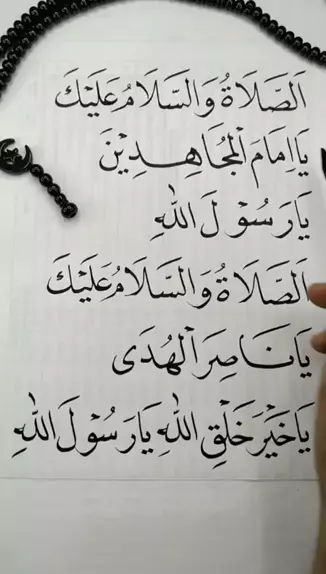 اَلصَّلَاةُ وَالسَّلَامُ عَلَيْكَ
يَا اِمَامَ الْمُجَاهِدِيْنَ
يَا رَسُوْلَ اللهِ
اَلصَّلَاةُ وَالسَّلَامُ عَلَيْكَ
يَا نَاصِرَ الْهُدَى
يَا خَيْرَ خَلْقِ اللهِ يَا رَسُوْلَ اللهِ